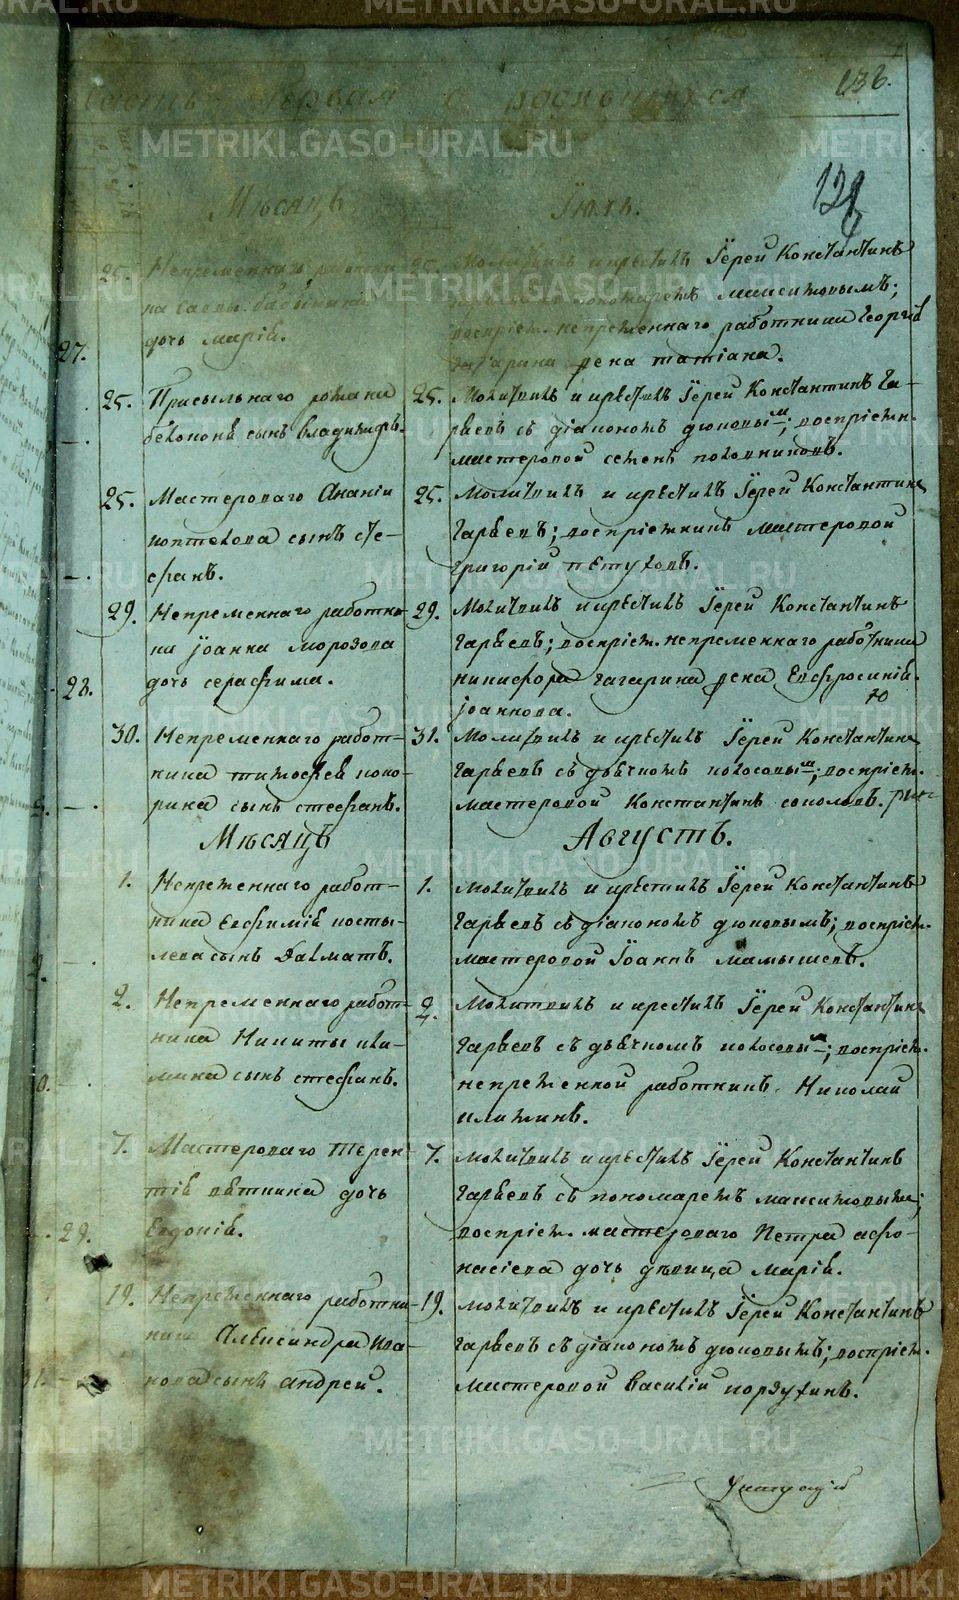 METRIKI.GASO-URAL.RU
136.
Часть Первая о раждающихся
128
Мѣсяцъ Іюль.
27.
25. Непременнаго работни
дочь Марія.
25. Молитвилъ и крестилъ Іерей Константинъ
пономаремъ Максимовымъ;
воспріем. непременнаго работника Георгія
Гагарина жена Татіана.
25. Присыльнаго Романа
сынъ Владимиръ.
25. Молитвилъ и крестилъ Іерей Константинъ Га-
ряевъ съ діакономъ Дюковым; воспріемн.
мастеровой Семенъ Половниковъ.
25. Мастероваго Ананіи
Коптелова сынъ Сте-
фанъ.
25. Молитвилъ и крестилъ Іерей Константинъ
Гаряевъ; воспріемникъ мастеровой
Григорій Пѣтуховъ.
28.
29. Непременнаго работни-
ка Іоанна Морозова
дочь Серафима.
29. Молитвилъ и крестилъ Іерей Константинъ
Гаряевъ; воспріем. непременнаго работника
Никифора Гагарина жена Евфросинія
Іоаннова.
30. Непременнаго работ-
ника Тимофея
сынъ Стефанъ.
31. Молитвилъ и крестилъ Іерей Константинъ
Гаряевъ съ дьячкомъ Колосовым; воспріем.
мастеровой Константинъ Соколовъ.
Мѣсяцъ Августъ.
1. Непременнаго работ-
ника Евфимія Косты-
лева сынъ Далматъ.
1. Молитвилъ и крестилъ Іерей Константинъ
Гаряевъ съ діакономъ Дюковымъ; воспріем.
мастеровой Іоаннъ Мамышевъ.
2. Непременнаго работ-
ника Никиты Или-
мина сынъ Стефанъ.
2. Молитвилъ и крестилъ Іерей Константинъ
Гаряевъ съ дьячкомъ Колосовым; воспріем.
непременной работникъ Николай
Илиминъ.
29.
7. Мастероваго Терен-
тія Вяткина дочь
Евдокія.
7. Молитвилъ и крестилъ Іерей Константинъ
Гаряевъ съ пономаремъ Максимовым;
воспріем. мастероваго Петра Афо-
насіева дочь дѣвица Марія.
19. Непременнаго работни-
ка Александра Ива-
нова сынъ Андрей.
19. Молитвилъ и крестилъ Іерей Константинъ
Гаряевъ съ діакономъ Дюковымъ; воспріем.
мастеровой Василій Корзухинъ.